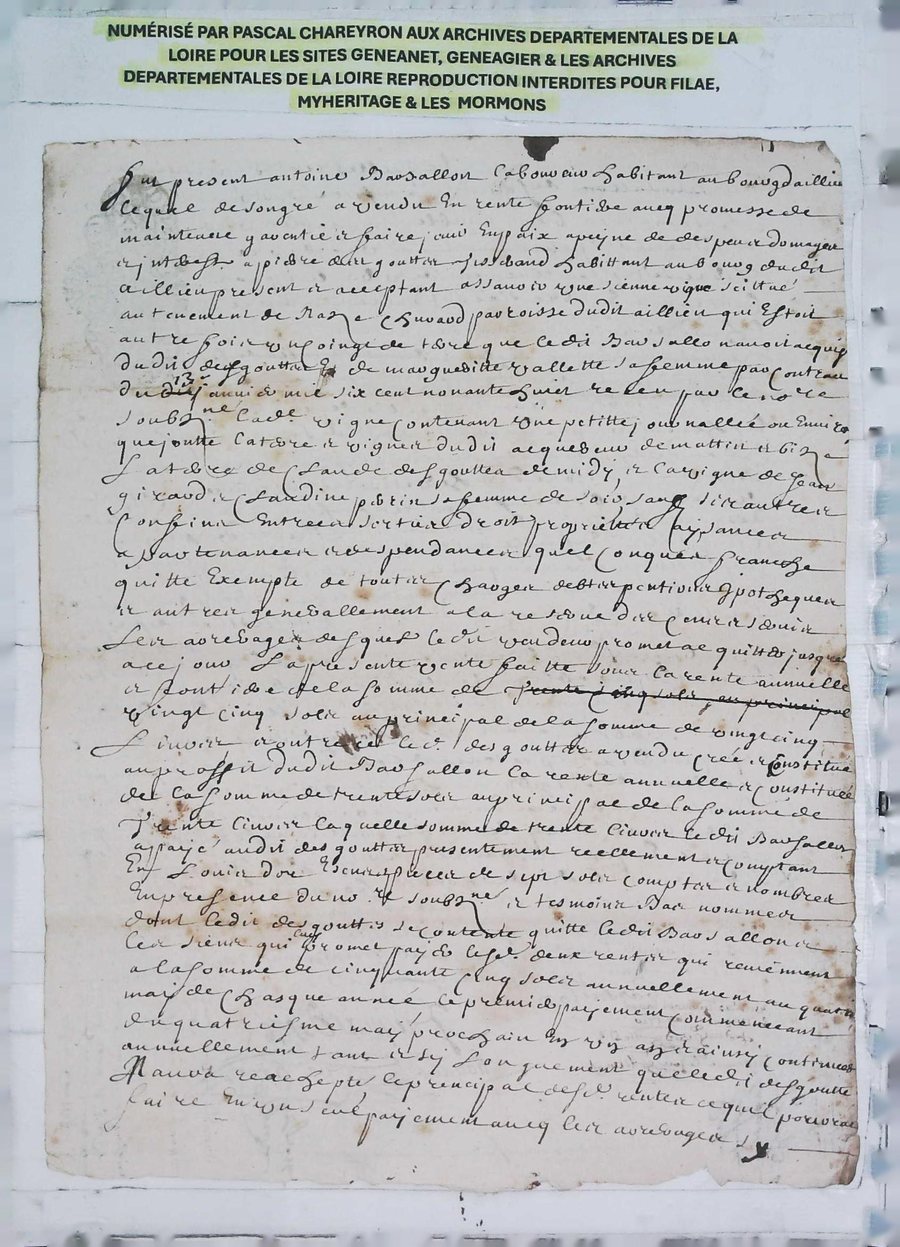 NUMÉRISÉ PAR PASCAL CHAREYRON AUX ARCHIVES DEPARTEMENTALES DE LA
LOIRE POUR LES SITES GENEANET, GENEAGIER & LES ARCHIVES
DEPARTEMENTALES DE LA LOIRE REPRODUCTION INTERDITES POUR FILAE,
MYHERITAGE & LES MORMONS
fut present antoine Barsallon laboureur habitant au bourg daillieu
lequel de son gré a vendu En rente fontiere avecq promesse de
maintenir garentie et faire jouir En paix a peyne de despens domages
et jnterest a pierre desgouttes habittant au bourg dudit
aillieu present et acceptant assavoir Une sienne vigne scittué
au tenement de paroisse dudit aillieu qui Estoit
autre fois de terre que ledit Barsallon avoit acquis
dudit desgouttes Et de margueritte vallette sa femme par Contract
du 13e janvier mil six cent nonante huict receu par le nore
soubzné lade vigne Contenant Une petitte journallée ou Environ
que joutte la terre et vigne dudit acquereur de mattin et bize
La terre de Claude desgouttes de midy et la vigne de Jean
giraud et Claudine perrin sa femme de soir, sauf ses autres
Confins Entrées sorties droits proprietés Aysances
apartenances et despendances quelConques franche
quitte Exempte de toutes Charges debtes pentions ypotheques
et autres generallement a la reserve des Cens et servis
Les arerages desquels ledit vendeur promet acquitter jusques
a ce jour La presente vente faitte sous la rente annuelle
et fontiere de la somme de trente Cinq sols en principal
vingt cinq sols au principal de la somme de vingt cinq
Livres et outre ce led. desgouttes a vendu créé et Constitué
au proffit dudit Barsallon la rente annuelle et Constituée
de la somme de trente sols au principal de la somme de
trente livres laquelle somme de trente livres ledit Barsallon
a payé audit desgouttes presentement reellement et Comptant
En Louis d'or Escus pieces de sept sols comptés et nombrés
En presence du nore soubzné et tesmoins Bas nommés
dont ledit desgouttes se contente quitte ledit Barsallon et
les siens qui promet payer lesd. deux rentes qui reviennent
a la somme de cinquante Cinq sols annuellement au quatre
may de Chasque année le premier payement Commencant
du quatriesme may prochain En Un an et ainsy continuer
annuellement tant et sy Longuement que ledit desgouttes
Naura reachepté le principal desd. rentes ce quil pourra
faire En un seul payement avecq les arerages sy